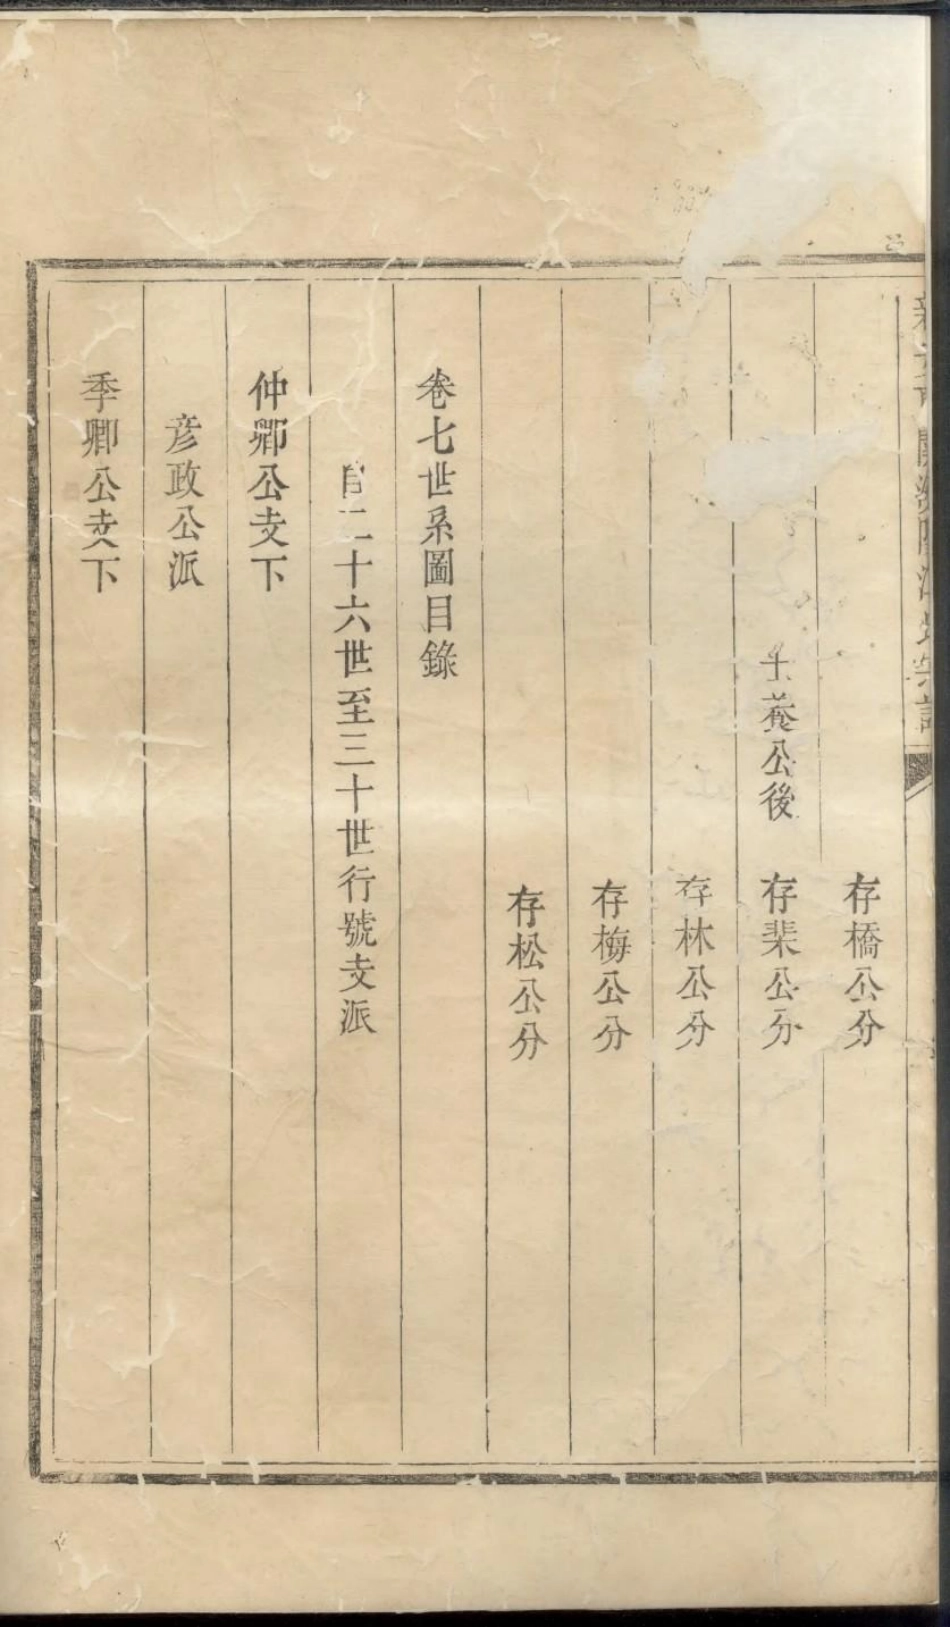 存橋公分
菴公後 存棐公分
存林公分
存梅公分
存松公分
卷七世系圖目錄
自二十六世至三十世行號支派
仲卿公支下
彦政公派
季卿公支下